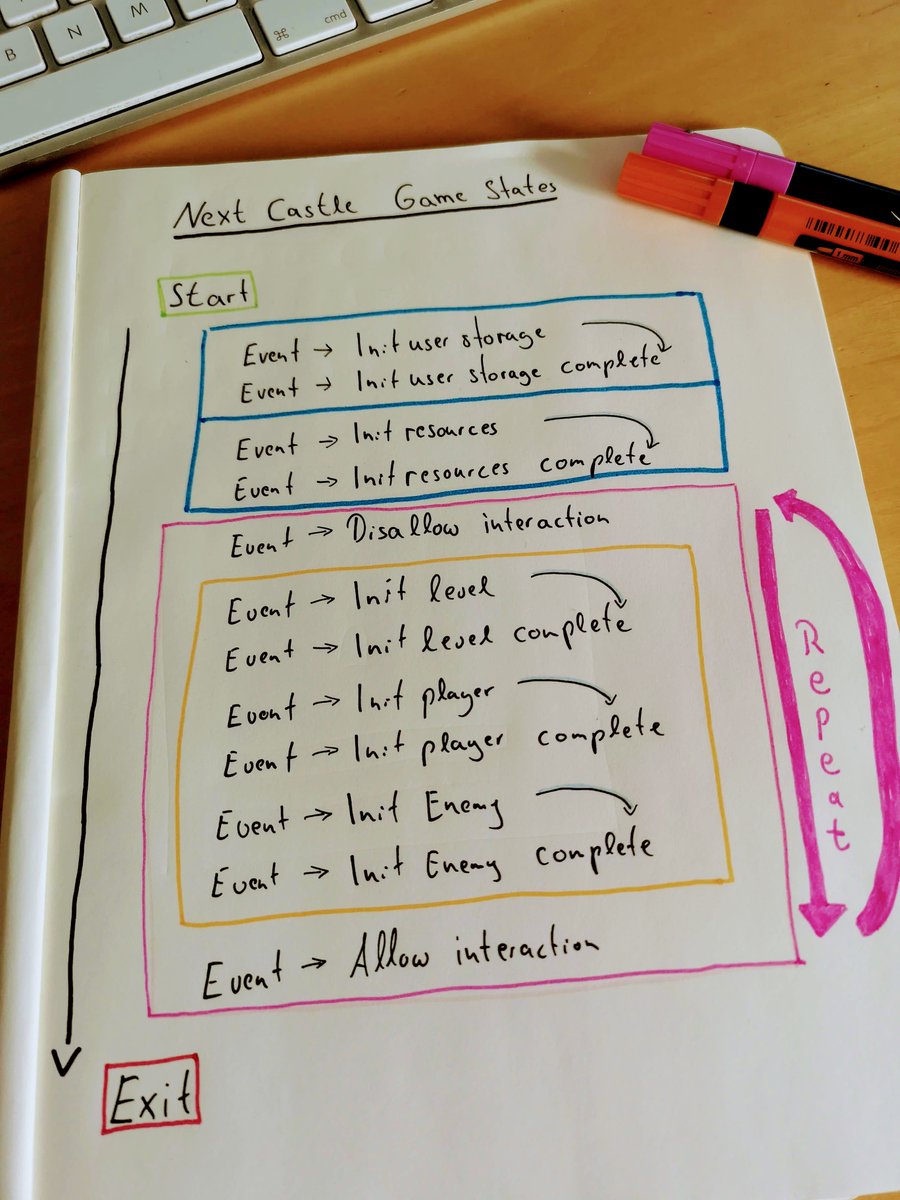 B N M ⌘ cmd
Next Castle Game States
Start
Event → Init user storage
Event → Init user storage complete
Event → Init resources
Event → Init resources complete
Event → Disallow interaction
Event → Init level
Event → Init level complete
Event → Init player
Event → Init player complete
Event → Init Enemy
Event → Init Enemy complete
Event → Allow interaction
Repeat
Exit
1 mm